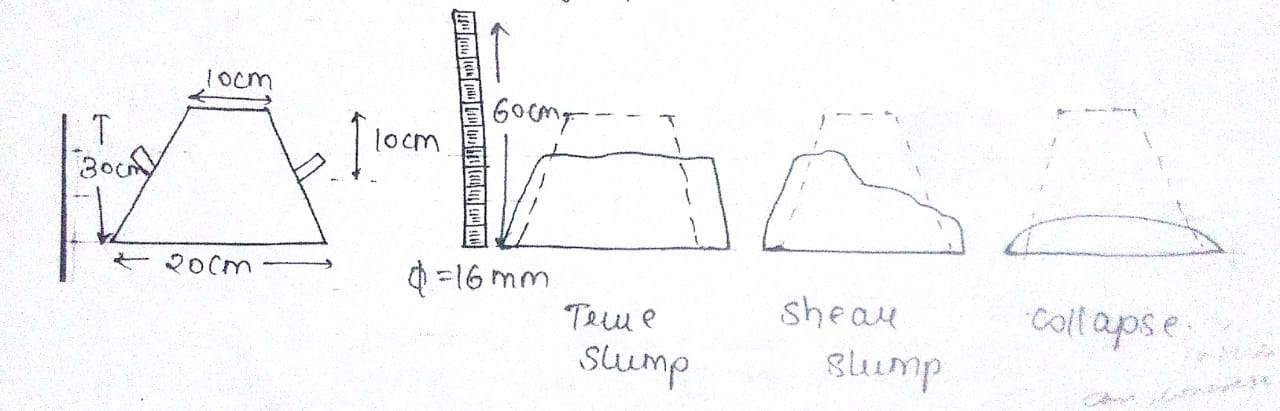 10cm
30cm
10cm
20cm
60cm
ϕ=16mm
True
Slump
Shear
Slump
Collapse.